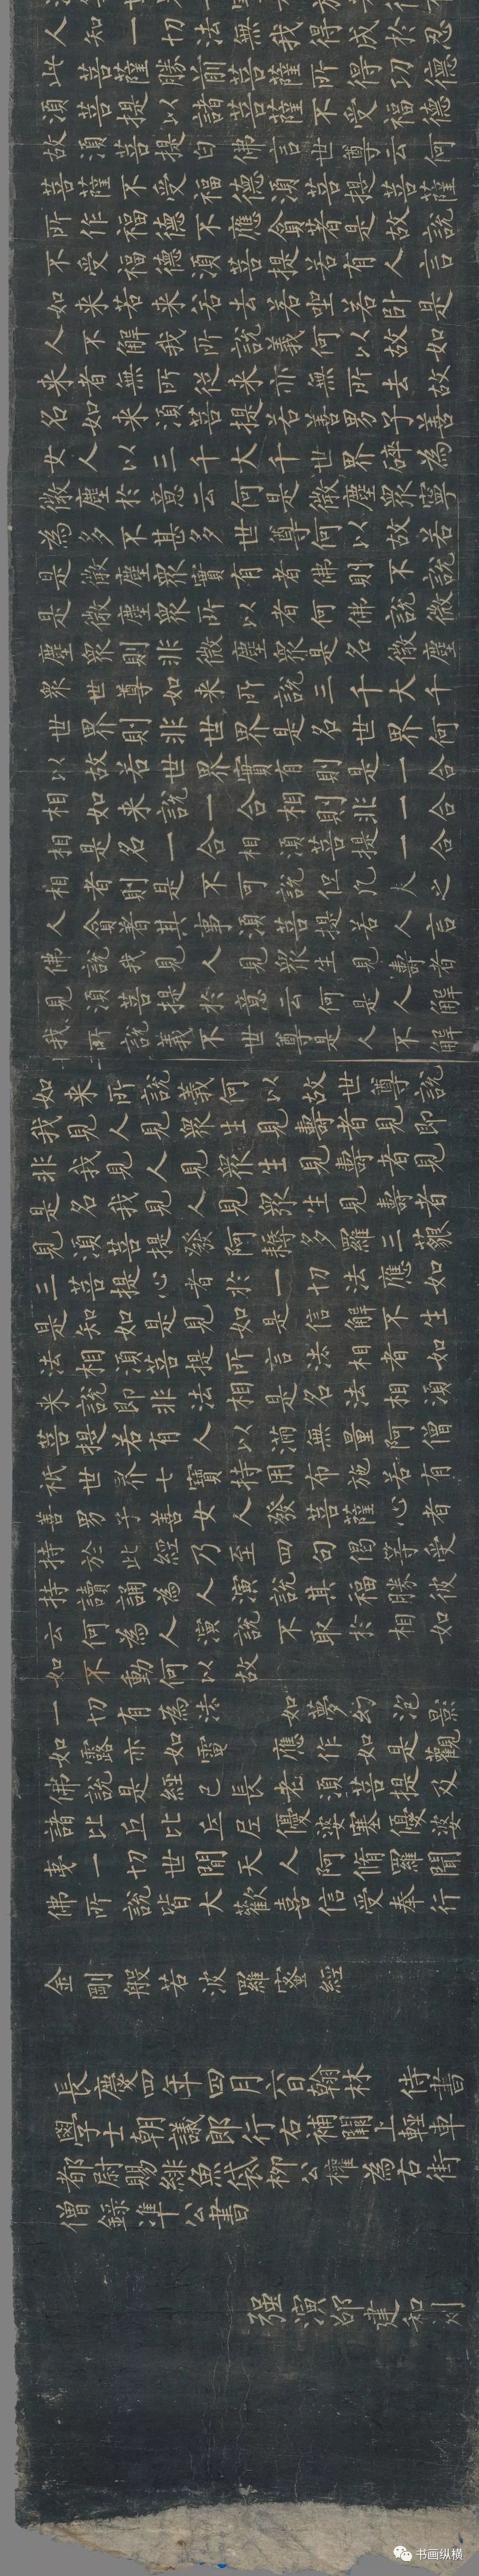 人知一切法無我得成於忍
此菩薩勝前菩薩所得功德
須菩提以諸菩薩不受福德
故須菩提白佛言世尊云何
菩薩不受福德須菩提菩薩
所作福德不應貪著是故說
不受福德須菩提若有人言
如来若来若去若坐若卧是
人不解我所說義何以故如
来者無所從来亦無所去故
名如来須菩提若善男子善
女人以三千大千世界碎為
微塵於意云何是微塵眾寧
為多不甚多世尊何以故若
是微塵眾實有者佛則不說
是微塵眾所以者何佛說微
塵眾則非微塵眾是名微塵
眾世尊如来所說三千大千
世界則非世界是名世界何
以故若世界實有則是一合
相如来說一合相則非一合
相是名一合相須菩提一合
相者則是不可說但凡夫之
人貪著其事須菩提若人言
佛說我見人見眾生見壽者
見須菩提於意云何是人解
我所說義不世尊是人不解
如来所說義何以故世尊說
我見人見眾生見壽者見即
非我見人見眾生見壽者見
是名我見人見眾生見壽者
見須菩提發阿耨多羅三藐
三菩提心者於一切法應如
是知如是見如是信解不生
法相須菩提所言法相者如
来說即非法相是名法相須
菩提若有人以滿無量阿僧
祇世界七寶持用布施若有
善男子善女人發菩薩心者
持於此經乃至四句偈等受
持讀誦為人演說其福勝彼
云何為人演說不取於相如
如不動何以故
一切有為法 如夢幻泡影
如露亦如電 應作如是觀
佛說是經已長老須菩提及
諸比丘比丘尼優婆塞優婆
夷一切世間天人阿脩羅聞
佛所說皆大歡喜信受奉行
金剛般若波羅蜜經
長慶四年四月六日翰林侍書
學士朝議郎行右補闕上輕車
都尉賜緋魚袋柳公權為右街
僧錄準公書
強演邵建和刻
书画纵横